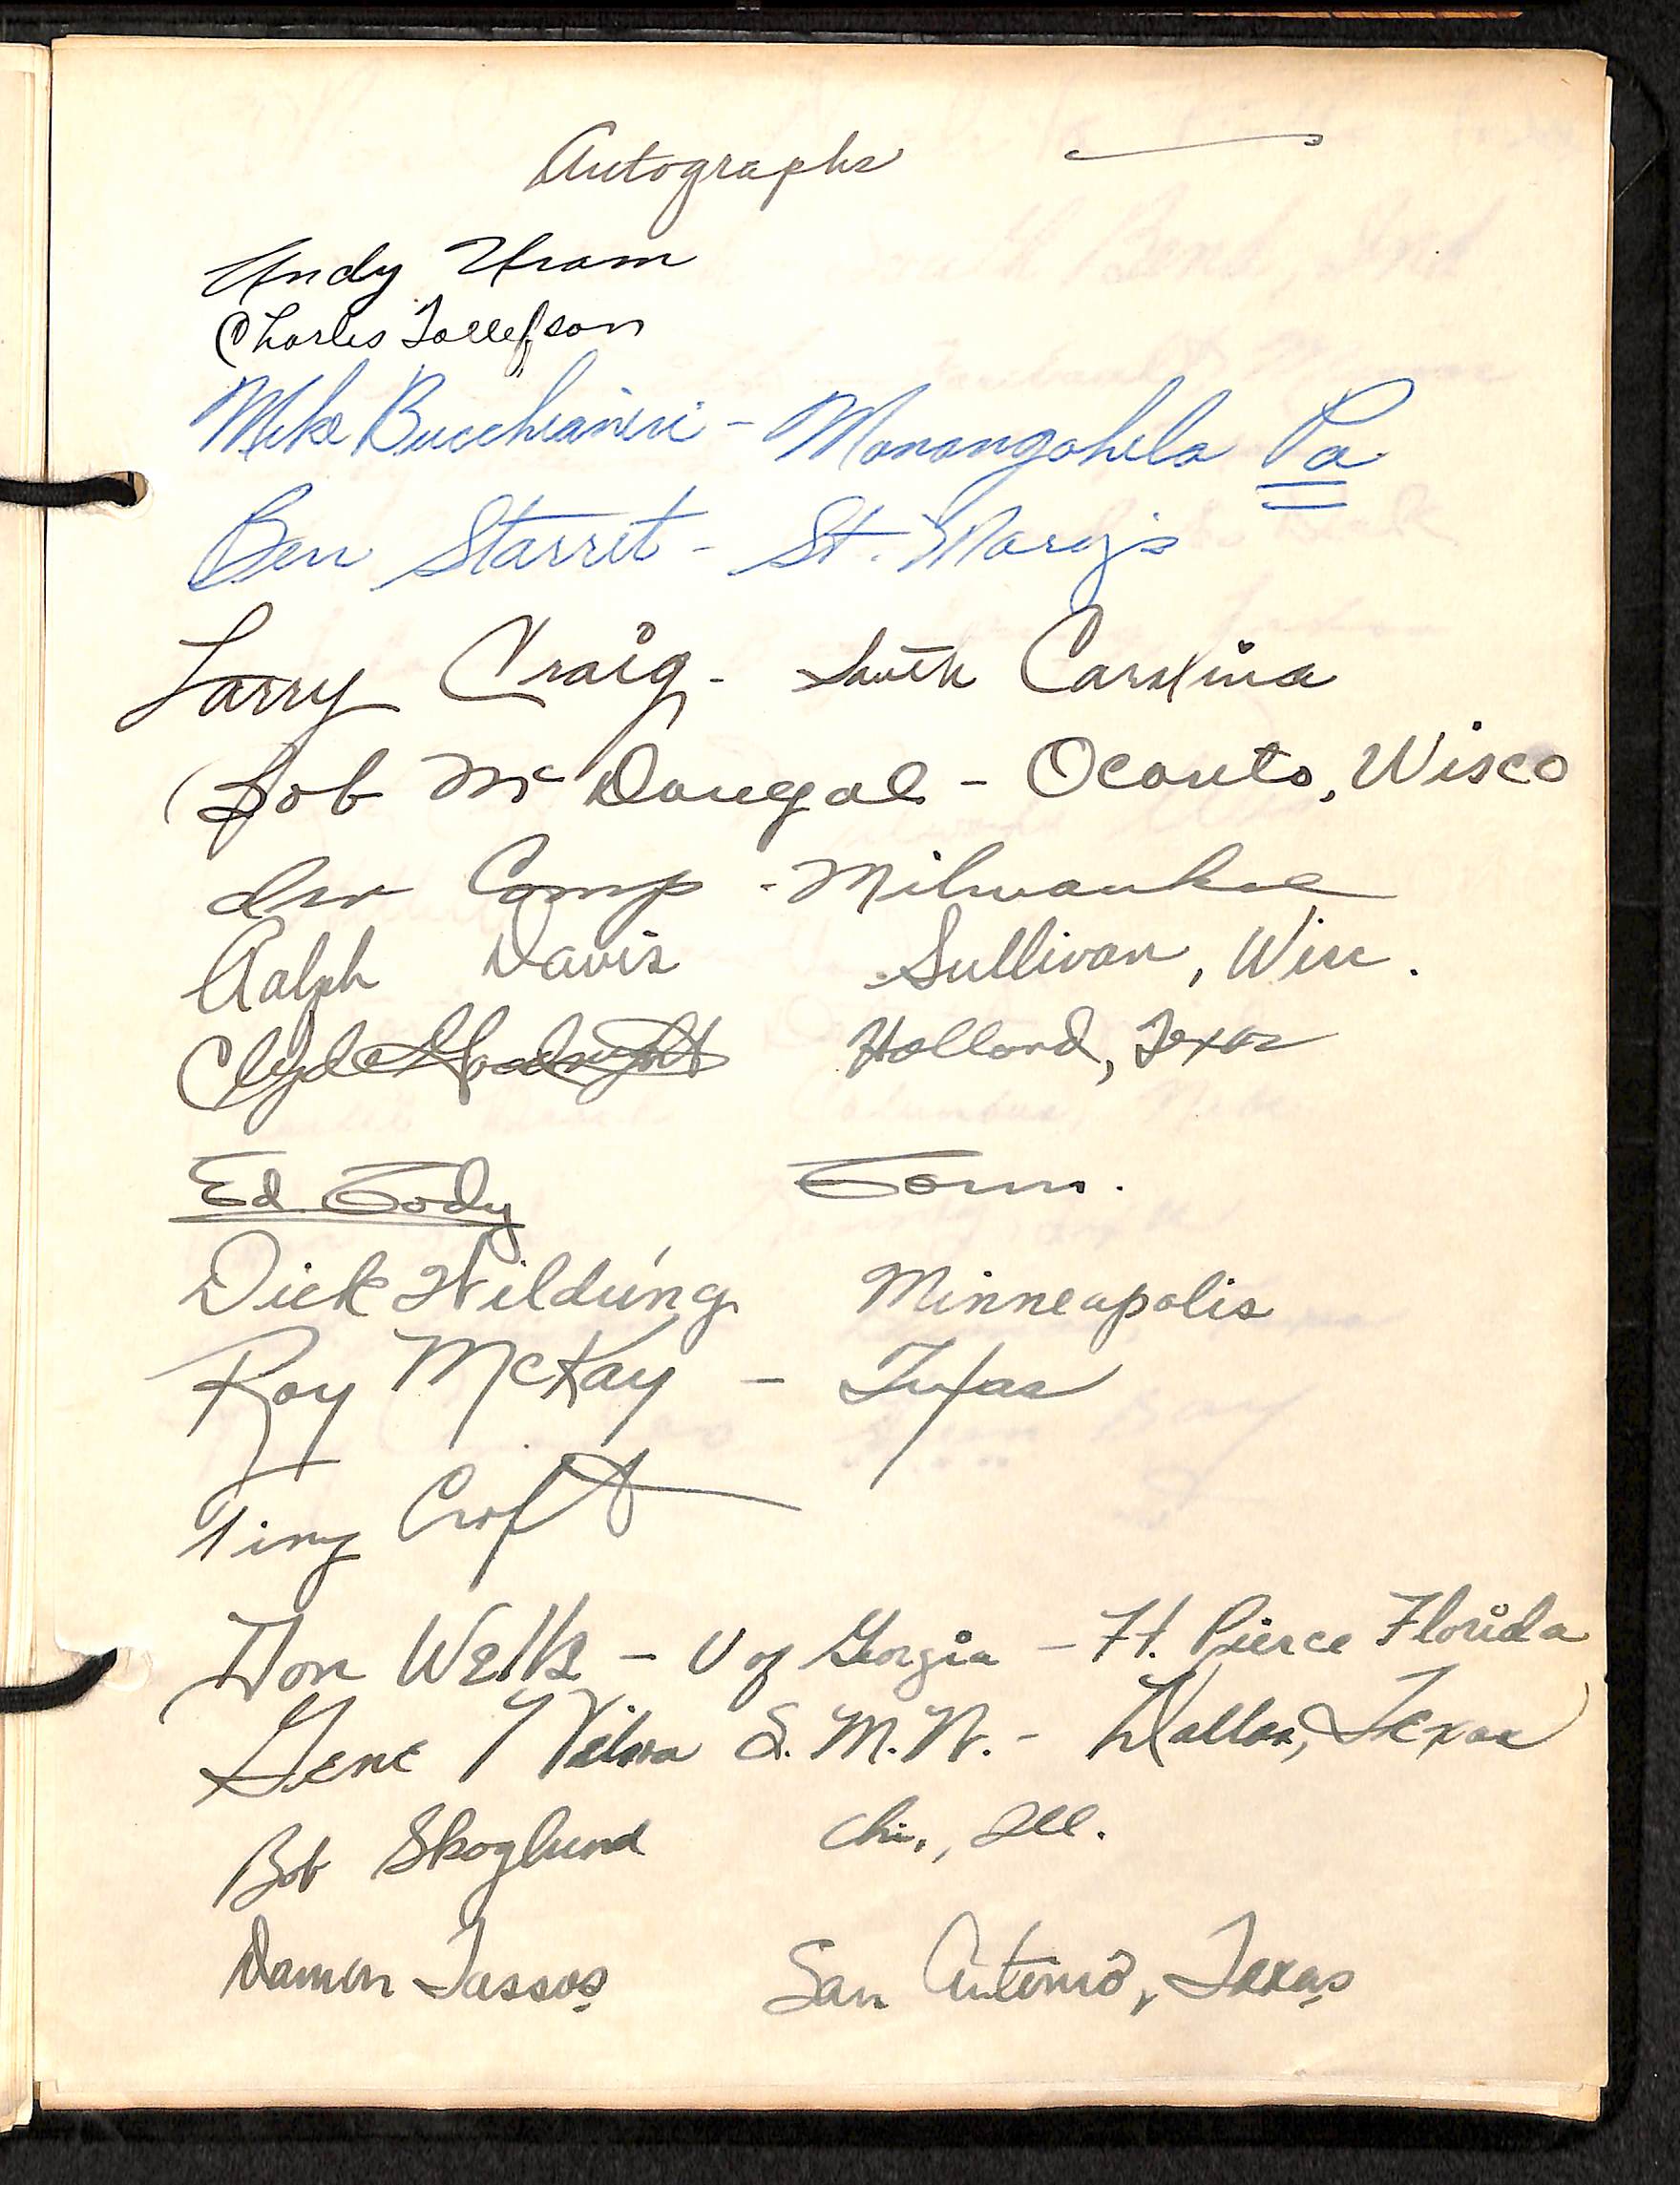 Autographs
Andy Uram
Charles Tollefson
Mike Bucchianeri - Monongahela Pa
Ben Starret - St. Mary's
Larry Craig - South Carolina
Bob McDougal - Oconto, Wisco
Irv Comp - Milwaukee
Ralph Davis Sullivan, Wisc.
Clyde Goodnight Holland, Texas
Ed Cody Conn.
Dick Wildung Minneapolis
Roy McKay - Texas
Tiny Croft
Don Wells - U of Georgia - Ft. Pierce Florida
Gene Wilson S.M.U. - Dallas, Texas
Bob Skoglund Chi., Ill.
Damon Tassos San Antonio, Texas